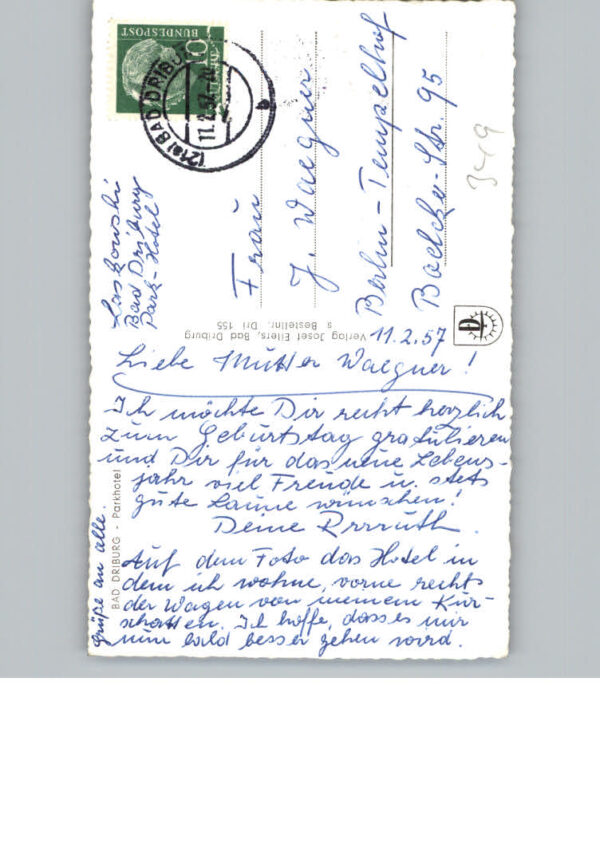 BUNDESPOST
10
(21a) BAD DRIBURG
11.2.57
Laskowski
Bad Driburg
Park-Hotel
Frau
J. Waegner
Berlin-Tempelhof
Boelcke-Str. 95
349
Verlag Josef Eilers, Bad Driburg
s Bestellnr. Dri 155
D
11.2.57
Liebe Mutter Waegner!
Ich möchte Dir recht herzlich
zum Geburtstag gratulieren
und Dir für das neue Lebens-
jahr viel Freude u. stets
gute Laune wünschen!
Deine Rrrruth.
Auf dem Foto das Hotel in
dem ich wohne, vorne rechts
der Wagen von meinem Kur-
schatten. Ich hoffe, dass es mir
nun bald besser gehen wird.
Grüße an alle.
BAD DRIBURG - Parkhotel